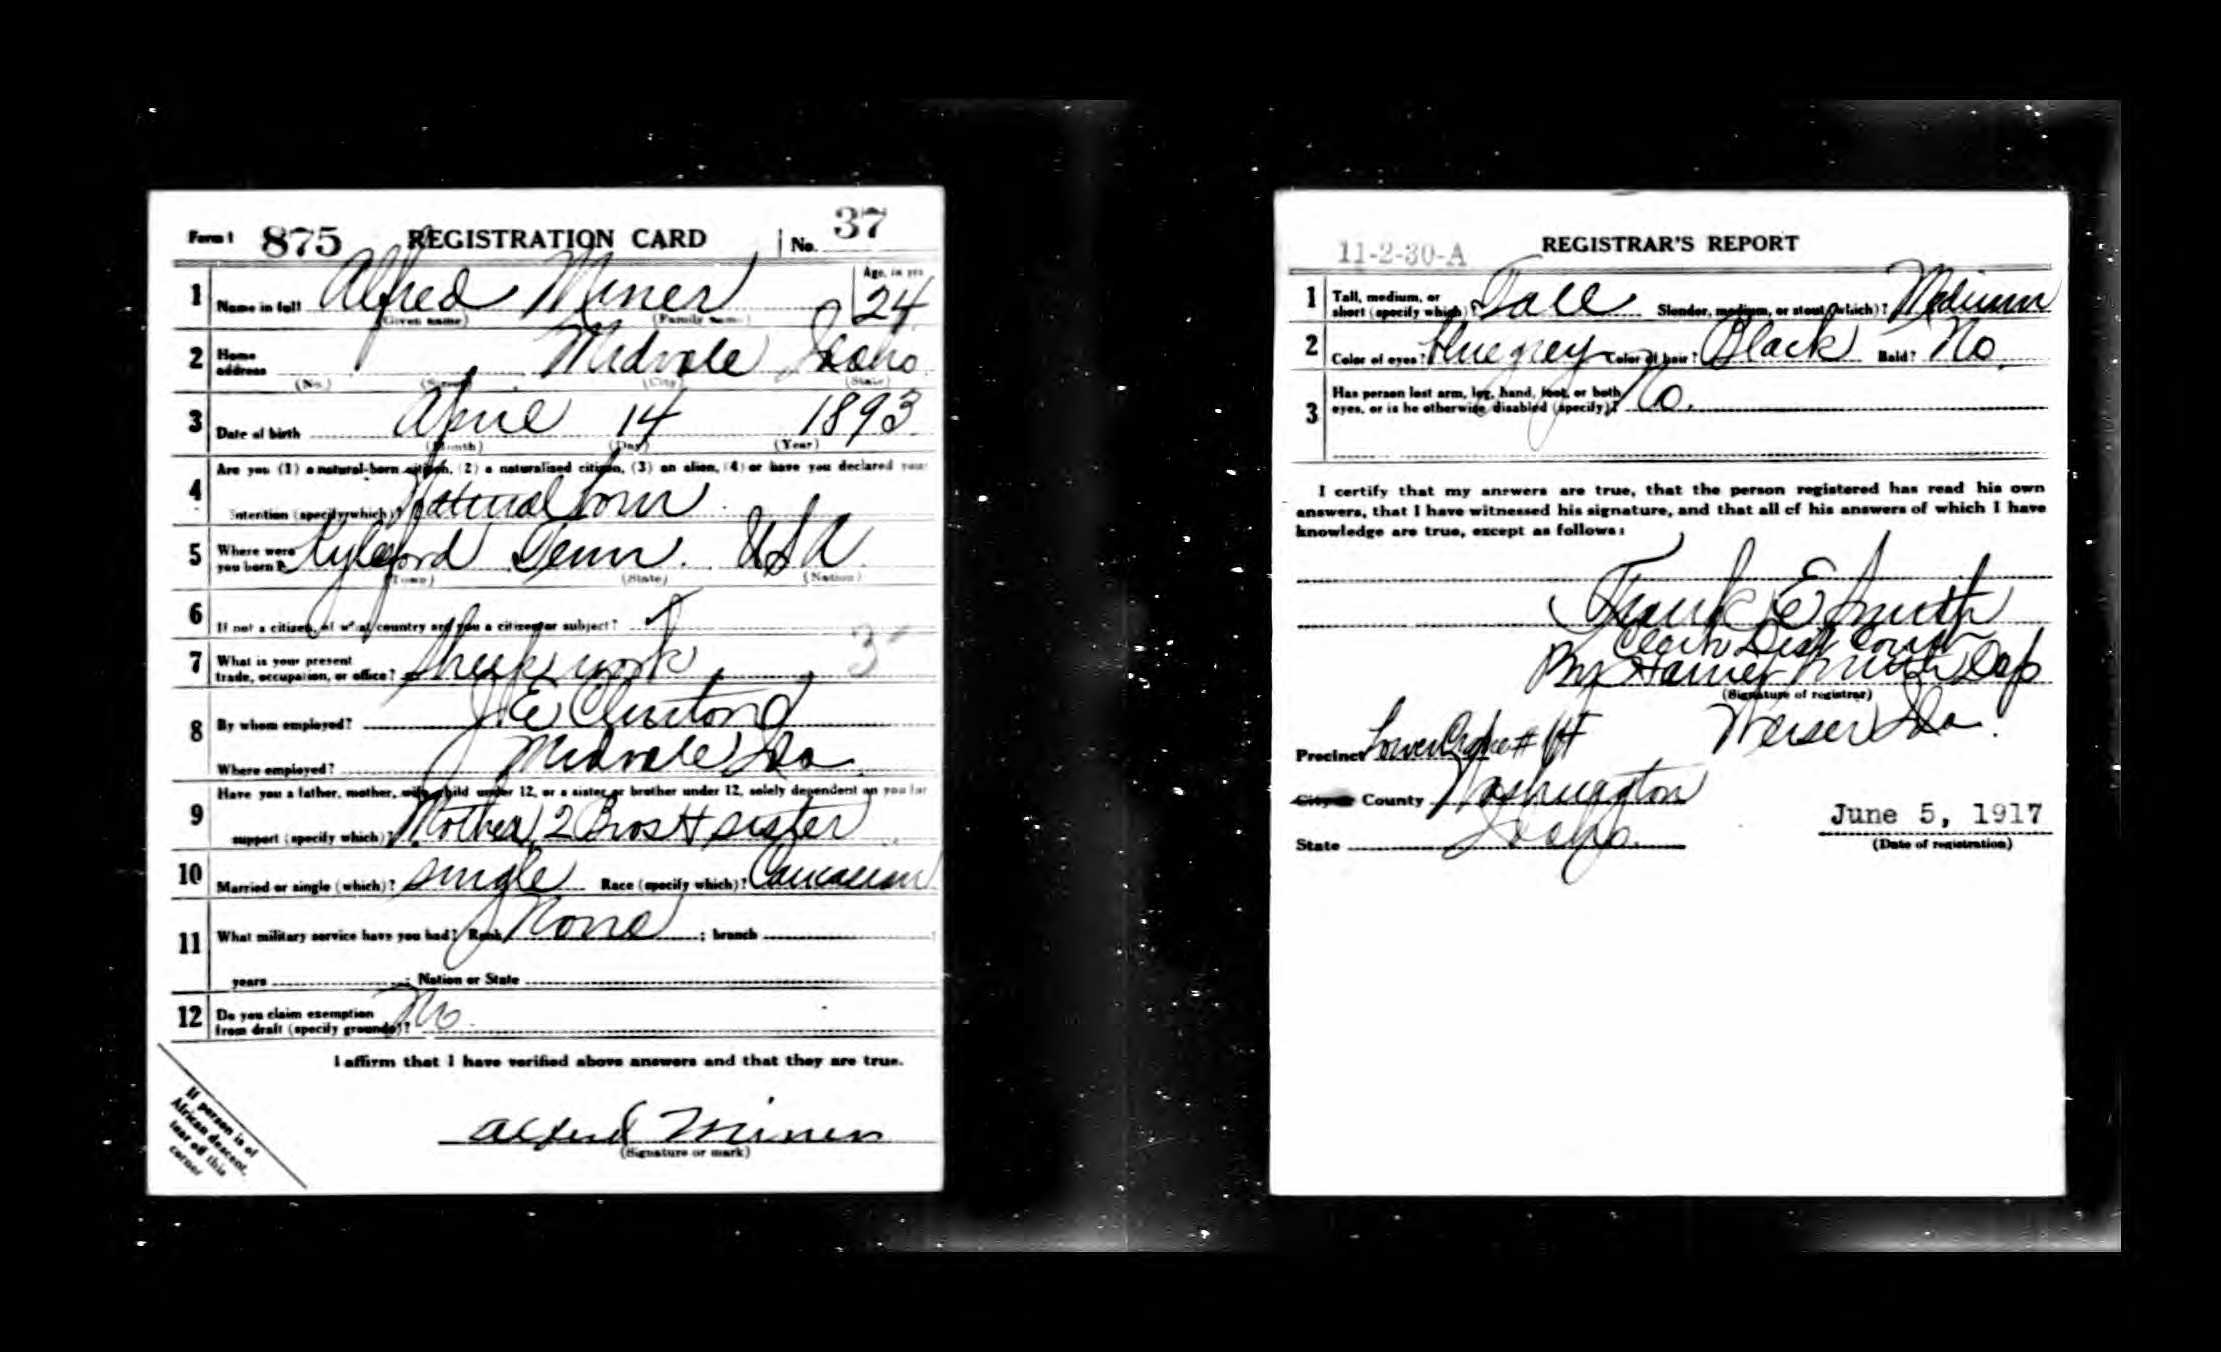 Form 1 875 REGISTRATION CARD No. 37
1 Name in full Alfred Miner Age, in yrs 24
(Given name) (Family name)
2 Home address Midvale Idaho
(No.) (Street) (City) (State)
3 Date of birth April 14 1893
(Month) (Day) (Year)
4 Are you (1) a natural-born citizen, (2) a naturalized citizen, (3) an alien, (4) or have you declared your
intention (specify which)? Natural born
5 Where were you born? Kyleford Tenn. USA
(Town) (State) (Nation)
6 If not a citizen, of what country are you a citizen or subject?
7 What is your present trade, occupation, or office? Sheep work 3
8 By whom employed? J. E Clinton
Where employed? Midvale Ida
9 Have you a father, mother, wife, child under 12, or a sister or brother under 12, solely dependent on you for
support (specify which)? Mother, 2 Bros + sister
10 Married or single (which)? single Race (specify which)? Caucasian
11 What military service have you had? Rank None ; branch
years ; Nation or State
12 Do you claim exemption from draft (specify grounds)? No
I affirm that I have verified above answers and that they are true.
Alfred Miner
(Signature or mark)
If person is of
African descent,
tear off this
corner
11-2-30-A REGISTRAR'S REPORT
1 Tall, medium, or short (specify which)? Tall Slender, medium, or stout (which)? Medium
2 Color of eyes? Blue grey Color of hair? Black Bald? No
3 Has person lost arm, leg, hand, foot, or both
eyes, or is he otherwise disabled (specify)? No.
I certify that my answers are true, that the person registered has read his own
answers, that I have witnessed his signature, and that all of his answers of which I have
knowledge are true, except as follows:
Frank E Smith
Clerk Dist Court
By Harriet Smith Dep
(Signature of registrar)
Precinct Lower # Weiser Ida.
City or County Washington
State Idaho.
June 5, 1917
(Date of registration)